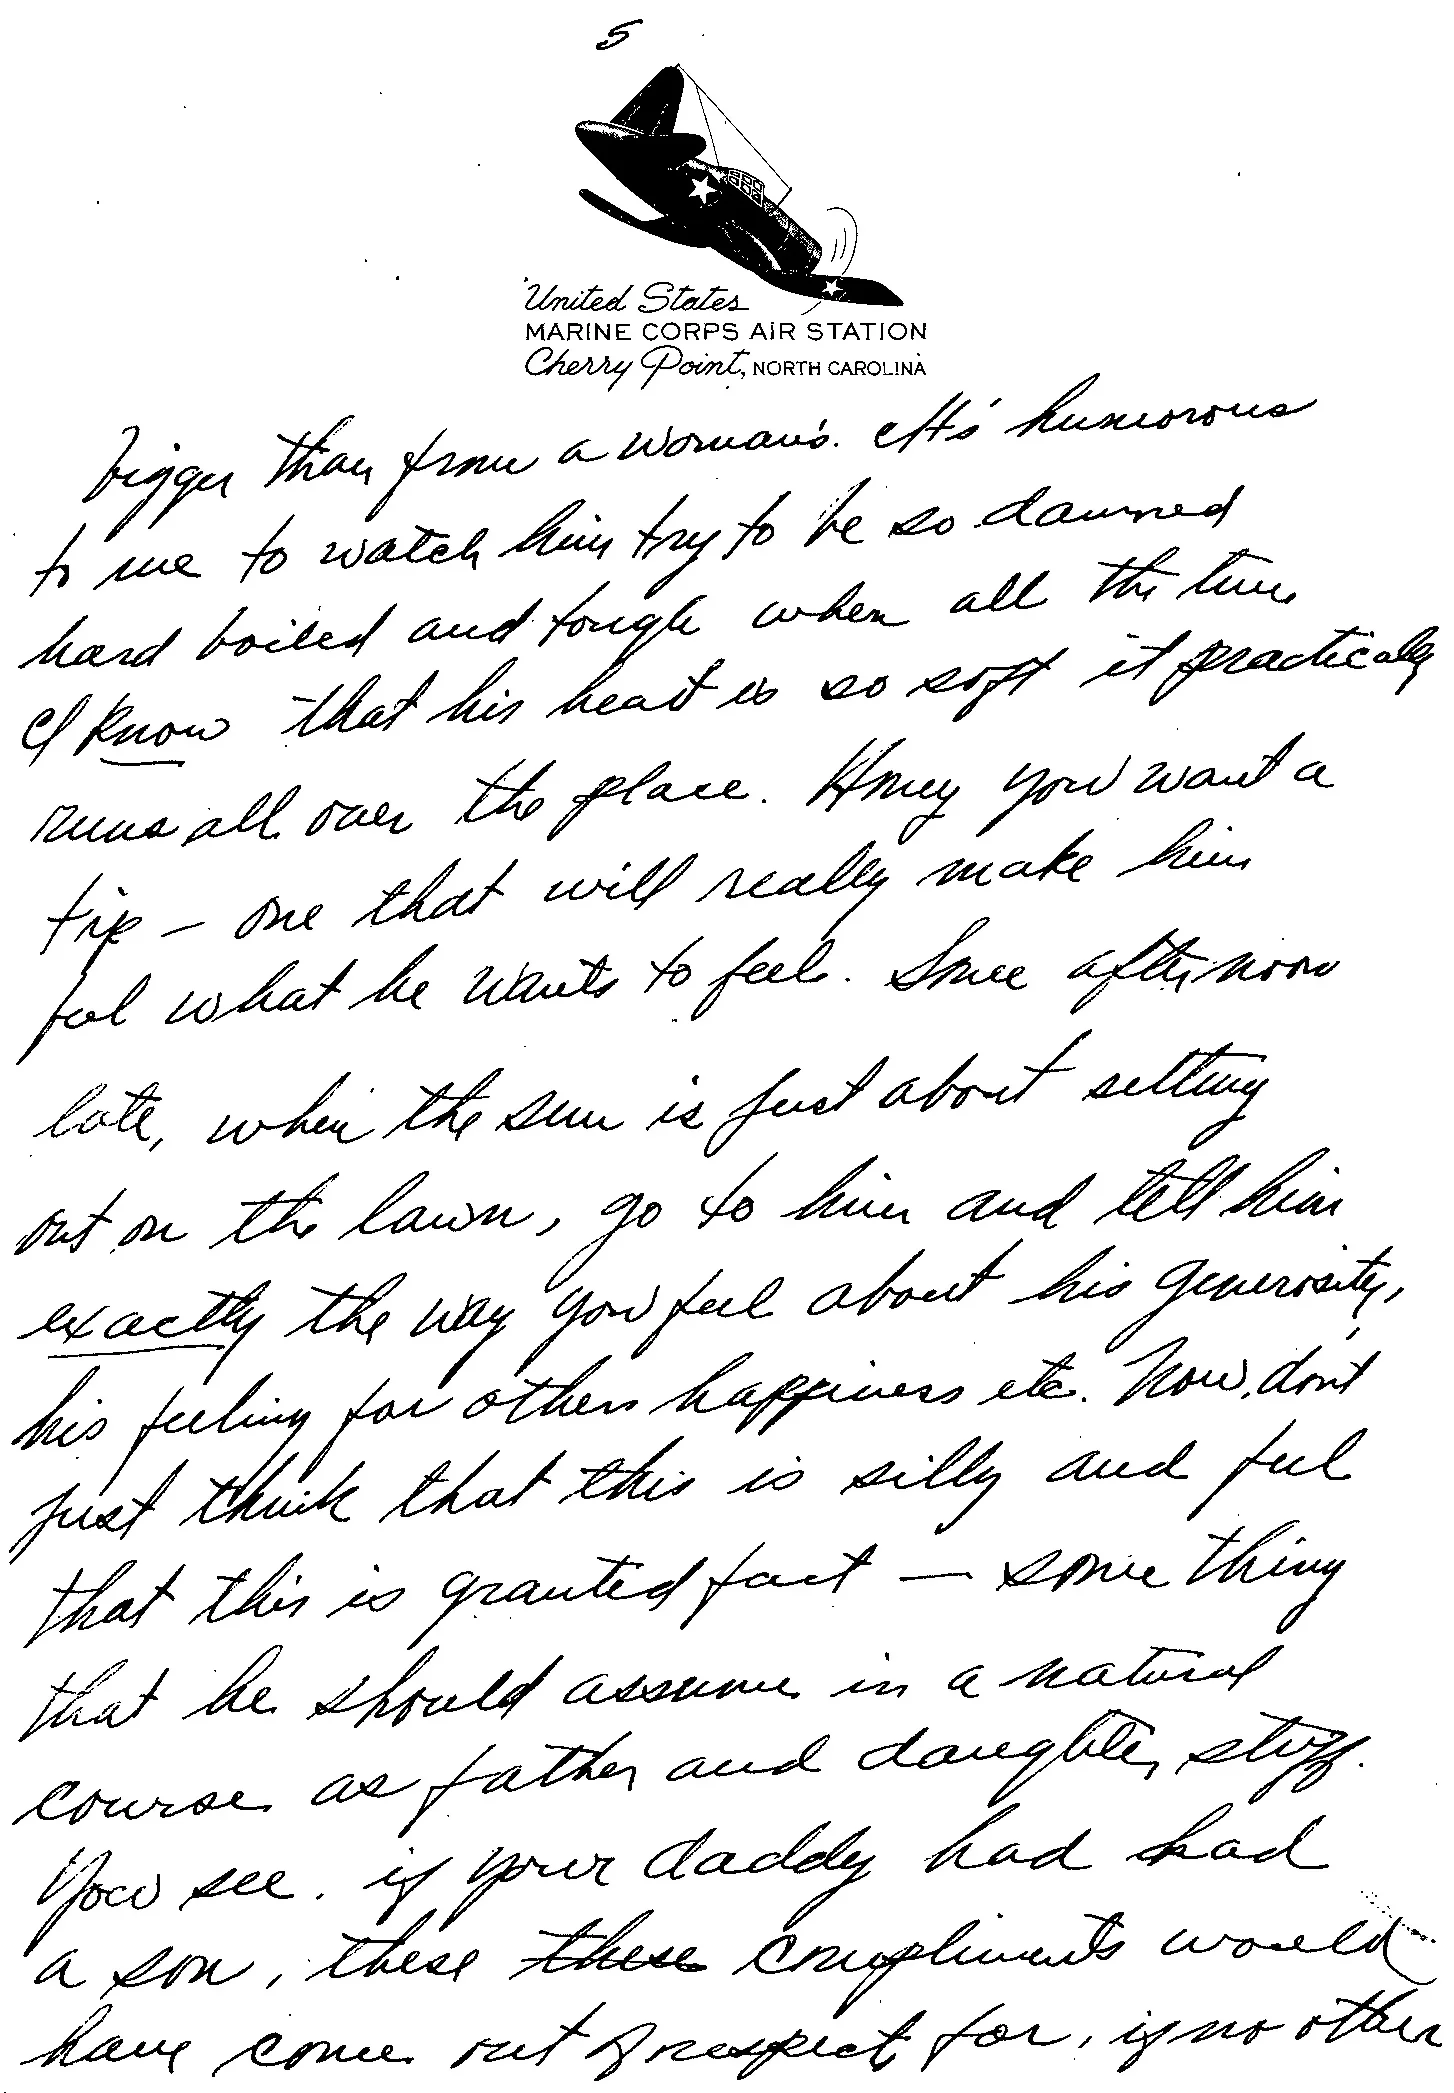 5
United States
MARINE CORPS AIR STATION
Cherry Point, NORTH CAROLINA
bigger than from a woman's. It's humorous
to me to watch him try to be so damned
hard boiled and tough when all the time
I know that his heart is so soft it practically
runs all over the place. Honey you want a
tip — one that will really make him
feel what he wants to feel. Some afternoon
late, when the sun is just about setting
out on the lawn, go to him and tell him
exactly the way you feel about his generosity,
his feeling for others happiness etc. Now, don't
just think that this is silly and feel
that this is granted fact — some thing
that he should assume in a natural
course as father and daughter stuff.
You see, if your daddy had had
a son, these these compliments would
have come out of respect for, if no other